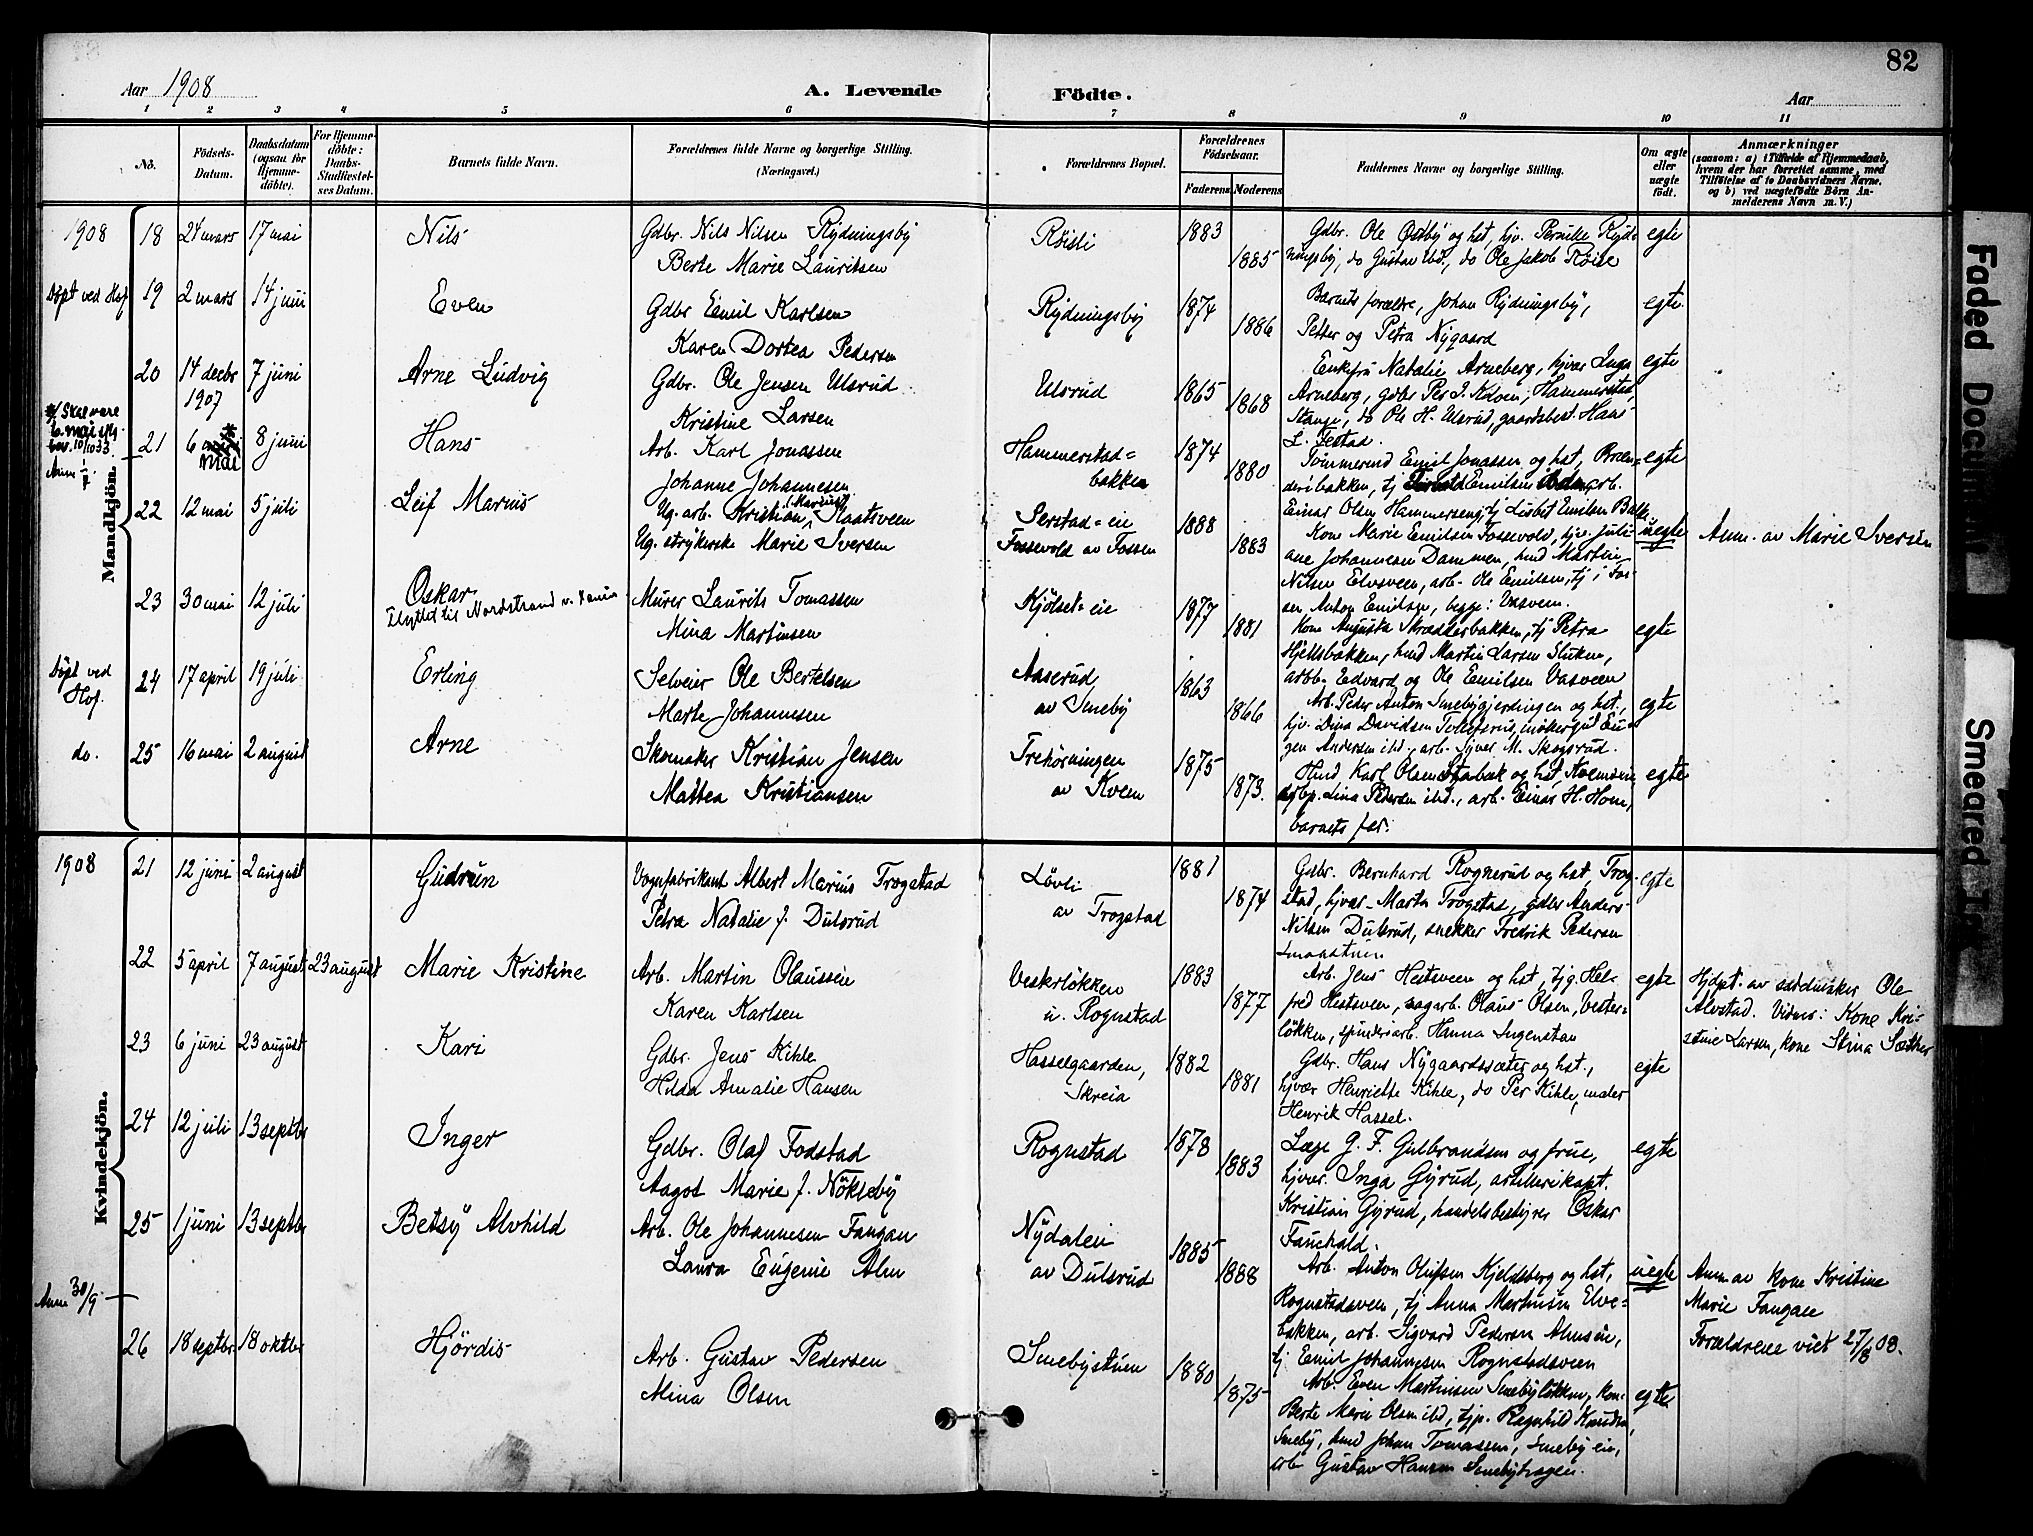 82
Aar 1908
A. Levende Födte.
Aar
1 2 3 4 5 6 7 8 9 10 11
No.
Födsels-Datum.
Daabsdatum (ogsaa for Hjemmedöbte).
For Hjemmedöbte: Daabs-Stadfæstelses Datum.
Barnets fulde Navn.
Forældrenes fulde Navne og borgerlige Stilling. (Næringsvei.)
Forældrenes Bopæl.
Forældrenes Födselsaar.
Faderens Moderens
Faddernes Navne og borgerlige Stilling.
Om ægte eller uægte födt.
Anmærkninger
(saasom: a) i Tilfælde af Hjemmedaab, hvem der har forrettet samme, med Tilföielse af to Daabsvidners Navne, og b) ved uægtefödte Börn Anmelderens Navn m. V.)
Mandkjön.
1908 18 24 mars 17 mai Nils
Gdbr. Nils Nilsen Rydningsby
Berte Marie Lauritsen
Röisli 1883 1885
Gdbr. Ole Østby og hst, hjv. Pernille Ryd-
ningsby, do Gustav ibd., do Ole Jakob Röise
egte
Döpt ved Hof 19 2 mars 14 juni Even
Gdbr Emil Karlsen
Karen Dortea Pedersen
Rydningsby 1874 1886
Barnets forældre, Johan Rydningsby,
Petter og Petra Nygaard
egte
20 14 decbr 1907 7 juni Arne Ludvig
Gdbr. Ole Jensen Ulsrud
Kristine Larsen
Ulsrud 1865 1868
Enkefru Natalie Arneberg, hjvær Inga
Arneberg, gdbr Per J. Kdven, Hammerstad,
Stange, do Ole H. Ulsrud, gaardsbest. Hans
L. Festad.
egte
Skal være
6. mai
10/10 33
21 6 mai 8 juni Hans
Arb. Karl Jonassen
Johanne Johannesen
Hammerstad=
bakken 1874 1880
Tömmermd Emil Jonassen og hst, Bræn=
deribakken, tj Emilsen arb.
Einar Olsen Hammerseng, tj Lisbet Emilsen
egte
22 12 mai 5 juli Leif Marius
Ug. arb. Kristian (Marius) Kaatsveen
Ug. strykerske Marie Iversen
Serstad=eie
Fossevold av Fossen 1888 1883
Kone Marie Emilsen Fossevold, hjv. Juli-
ane Johannesen Dammen, hmd Martin
Nilsen Elvsveen, arb. Ole Emilsen, tj i Fos-
sen, Anton Emilsen, begge: Vasveen.
uegte
Anm. av Marie Iversen
23 30 mai 12 juli Oskar
Flyttet til Nordstrand v. Xania
Murer Laurits Tomassen
Mina Martinsen
Kjölset=eie 1877 1881
Kone Augusta Skrædderbakken, tj Petra
Hjellsbakken, hmd Martin Larsen Sluken,
arbb. Edvard og Ole Emilsen Vasveen
egte
Döpt ved Hof. 24 17 april 19 juli Erling
Selveier Ole Bertelsen
Marte Johannesen
Aaserud
av Smeby 1863 1866
Arb. Peder Anton Smebygjerdingen og hst.,
hjv. Dina Davidsen Tollefsrud, møkergut Eu-
gen Andersen ibd., arb. Syver M. Skogsrud.
egte
do. 25 16 mai 2 august Arne
Skomaker Kristian Jensen
Mattea Kristiansen
Trehörningen
av Kvem 1875 1873
Hmd Karl Olsen Stabæk og hst, Kvemseie,
Lina Pedersen ibd., arb. Einar H. Hom,
barnets far.
egte
Kvindekjön.
1908 21 12 juni 2 august Gudrun
Vognfabrikant Albert Marius Trogstad
Petra Natalie f. Dulsrud
Lövli
av Trogstad 1881 1874
Gdbr. Bernhard Rognerud og hst, Trog-
stad, hjvær. Marta Trogstad, gdbr Anders
Nilsen Dulsrud, snekker Fredrik Pedersen
Smaastuen
egte
22 5 april 7 august 23 august Marie Kristine
Arb. Martin Olaussen
Karen Karlsen
Vesterlökken
u. Rognstad 1883 1877
Arb. Jens Hestsveen og hst, tjg. Hel-
fred Hestsveen, sagarb. Olaus Olsen, Vester-
lökken, spinderiarb. Hanna Ingenstau
egte
Hjdpt. av sæddusker Ole
Alvstad. Vidner: Kone Kri-
stine Larsen, kone Stina Sæther
23 6 juni 23 august Kari
Gdbr. Jens Kihle
Hilda Amalie Hansen
Hasselgaarden,
Skreia 1882 1881
Gdbr. Hans Nygaardssæter og hst.,
hjvær Henriette Kihle, do Per Kihle, maler
Henrik Hassel.
egte
24 12 juli 13 septbr Inger
Gdbr. Olaf Fodstad
Aagot Marie f. Nökleby
Rognstad 1878 1883
Læge G. F. Gulbrandsen og frue,
hjvær. Inga Gyrud, artillerikapt.
Kristian Gyrud, handelsbestyrer Oskar
Fauchald.
egte
25 1 juni 13 septbr Betsy Alvhild
Arb. Ole Johannesen Faugan
Laura Eugenie Alm
Nydalen
av Dulsrud 1885 1888
Arb. Anton Olufsen Kjeldsberg og hst,
Rognstadsveen, tj Anna Martinsen Elve=
bakken, arb. Sigvard Pedersen Almseie,
tj. Emil Johannesen Rognstadsveen
uegte
Anm av kone Kristine
Marie Faugan
Forældrene viet 27/8 08.
Anm 30/9
26 18 septbr 18 oktbr Hjördis
Arb. Gustav Pedersen
Mina Olsen
Smebystuen 1880 1875
Arb. Even Martinsen Smebylökken, kone
Berte Marie Olsen ibd, tjp. Ragnhild Knudsen,
Smeby, hmd Johan Tomassen, Smeby eie,
arb Gustav Hansen Smebyhagen.
egte
Faded Document
Smeared Ink